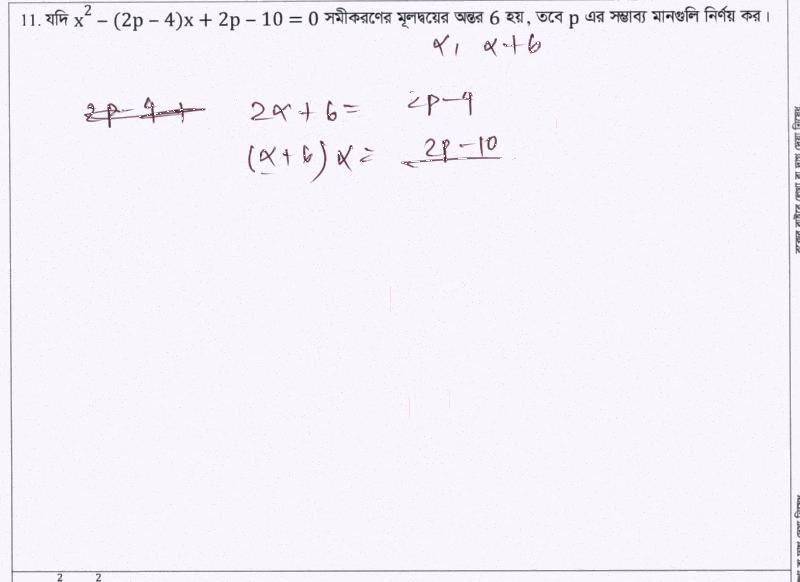 11. যদি x² − (2p − 4)x + 2p − 10 = 0 সমীকরণের মূলদ্বয়ের অন্তর 6 হয়, তবে p এর সম্ভাব্য মানগুলি নির্ণয় কর।
α, α+6
2α + 6 = 2p−4
(α+6)α = 2p−10
2 2